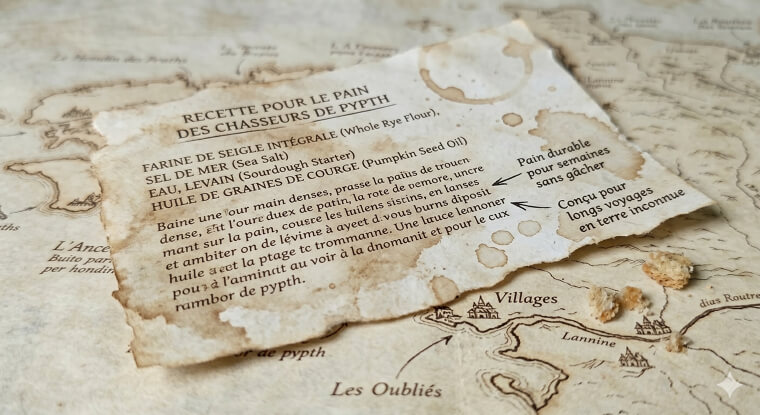 RECETTE POUR LE PAIN
DES CHASSEURS DE PYPTH
FARINE DE SEIGLE INTÉGRALE (Whole Rye Flour),
SEL DE MER (Sea Salt)
EAU, LEVAIN (Sourdough Starter)
HUILE DE GRAINES DE COURGE (Pumpkin Seed Oil)
Baine une our main denses, prasse la paius de troucn
dense, l'oure duex de patin, la rote de nemore, uncre
mant sur la pain, couste les huilens sistins, en lanses
et ambiter on de lévime à ayeet d vous burns diposit
huile la ptage tc trommanne. Une lauce lennoner
pou à l'aminat au voir à la dnomanit et pour le cux
rambor de pypth.
Pain durable
pour semaines
sans gâcher
Conçu pour
longs voyages
en terre inconnue
L'Ance
Buite
per hondin
Villages
Lannine
dias Routre
de pypth
Les Oubliés